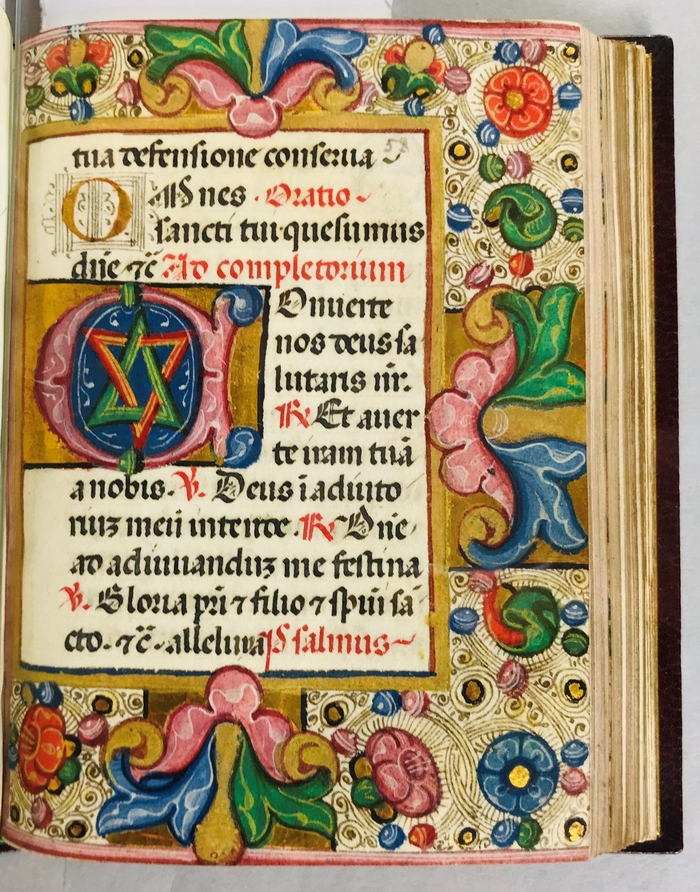 tua defensione conserua 58
OMnes. Oratio
sancti tui quesumus
dñe ⁊c̃ Ad completorium
COnuerte
nos deus sa
lutaris nr̃.
℟ Et auer
te iram tuã
a nobis. ℣. Deus ĩ adiuto
riuʒ meũ intende. ℟ Dñe
ad adiuuanduʒ me festina
℣. Gloria pr̃i ⁊ filio ⁊ sp̃ui sã
cto. ⁊c̃. alleluia psalmus